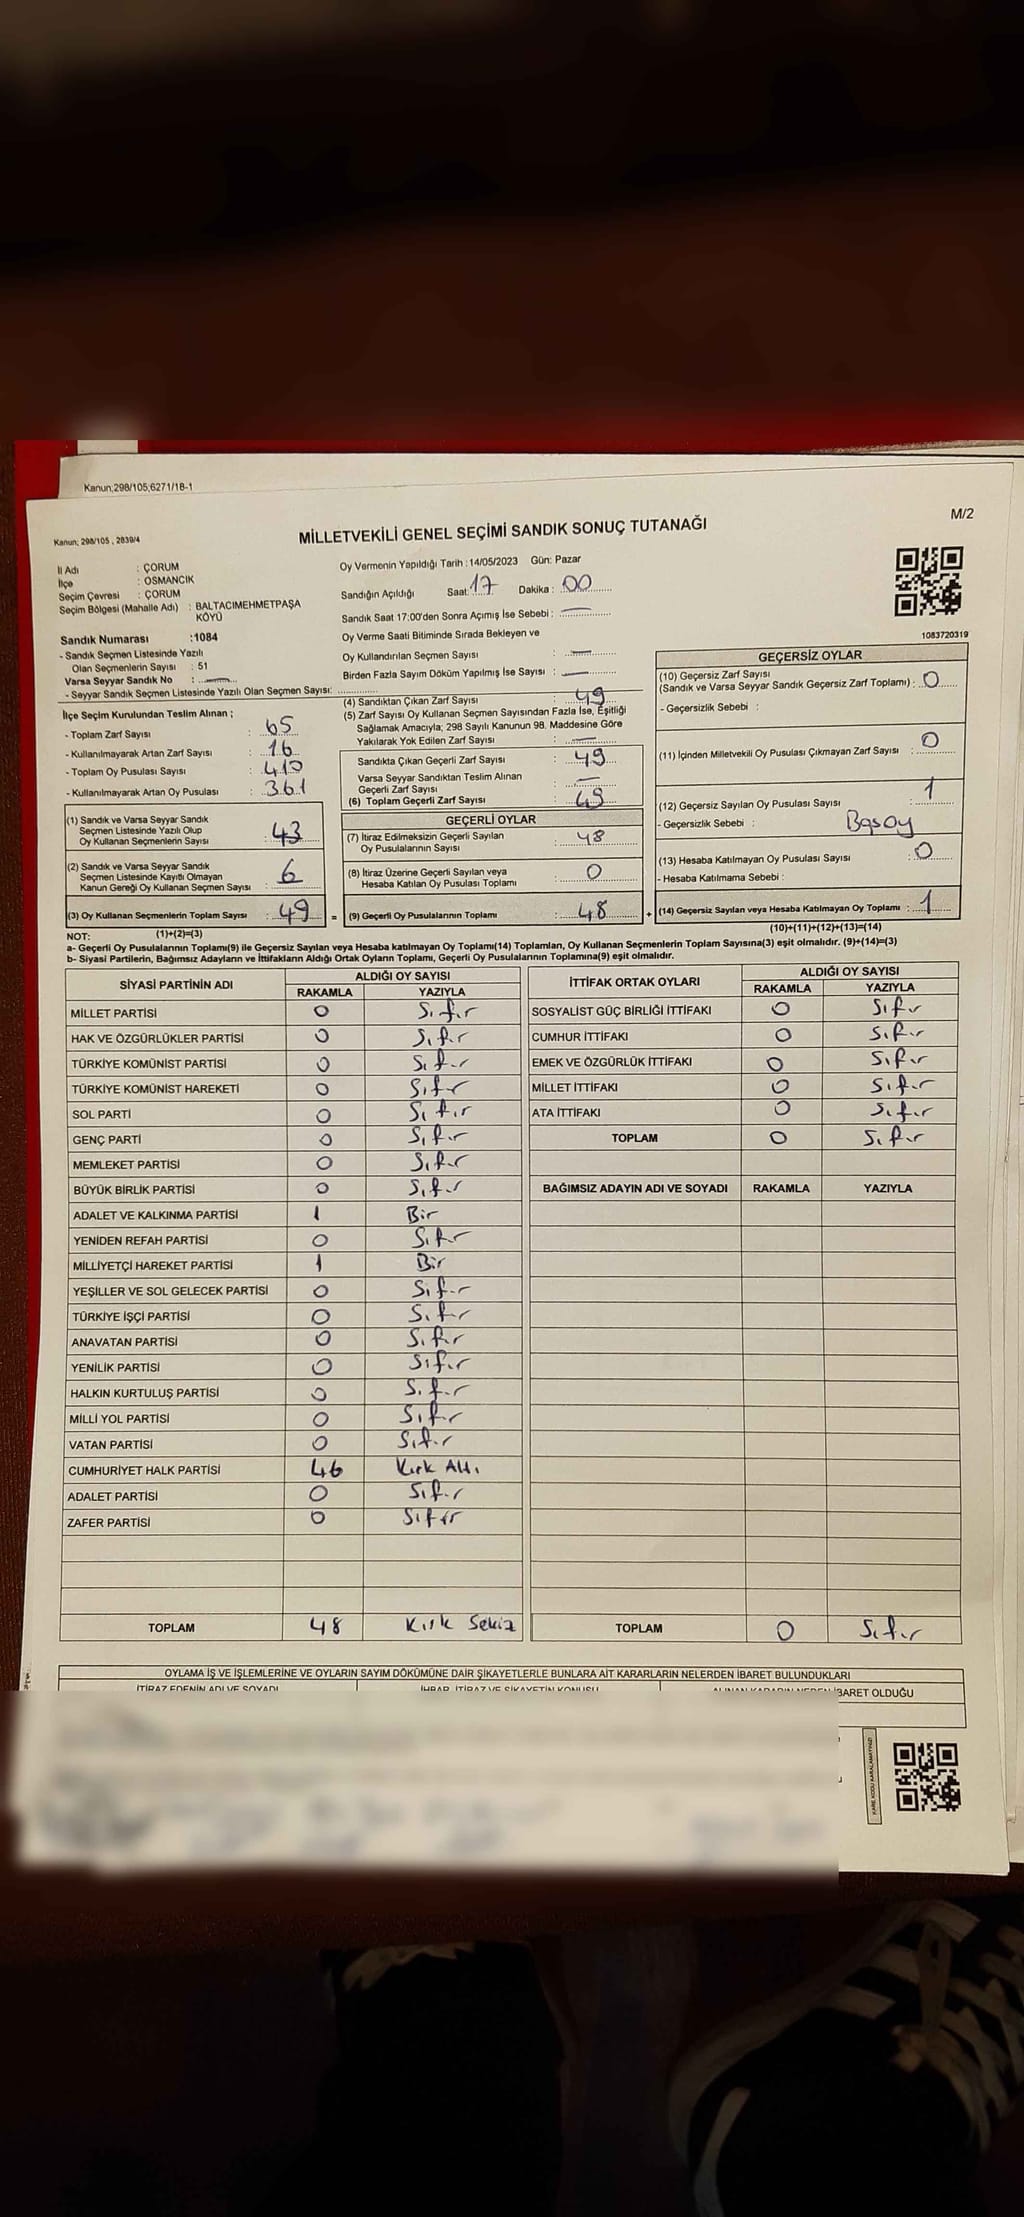 Kanun;298/105,6271/18-1
M/2
Kanun; 298/105 , 2839/4
MİLLETVEKİLİ GENEL SEÇİMİ SANDIK SONUÇ TUTANAĞI
İl Adı : ÇORUM
İlçe : OSMANCIK
Seçim Çevresi : ÇORUM
Seçim Bölgesi (Mahalle Adı) : BALTACIMEHMETPAŞA
KÖYÜ
Sandık Numarası :1084
- Sandık Seçmen Listesinde Yazılı
Olan Seçmenlerin Sayısı : 51
Varsa Seyyar Sandık No : —
- Seyyar Sandık Seçmen Listesinde Yazılı Olan Seçmen Sayısı:
Oy Vermenin Yapıldığı Tarih :14/05/2023 Gün: Pazar
Sandığın Açıldığı Saat: 17 Dakika : 00
Sandık Saat 17:00'den Sonra Açımış İse Sebebi : —
Oy Verme Saati Bitiminde Sırada Bekleyen ve
Oy Kullandırılan Seçmen Sayısı : —
Birden Fazla Sayım Döküm Yapılmış İse Sayısı : —
1083720319
İlçe Seçim Kurulundan Teslim Alınan ;
- Toplam Zarf Sayısı : 65
- Kullanılmayarak Artan Zarf Sayısı : 16
- Toplam Oy Pusulası Sayısı : 410
- Kullanılmayarak Artan Oy Pusulası : 361
(1) Sandık ve Varsa Seyyar Sandık
Seçmen Listesinde Yazılı Olup
Oy Kullanan Seçmenlerin Sayısı : 43
(2) Sandık ve Varsa Seyyar Sandık
Seçmen Listesinde Kayıtlı Olmayan
Kanun Gereği Oy Kullanan Seçmen Sayısı : 6
(3) Oy Kullanan Seçmenlerin Toplam Sayısı : 49 =
(1)+(2)=(3)
(4) Sandıktan Çıkan Zarf Sayısı : 49
(5) Zarf Sayısı Oy Kullanan Seçmen Sayısından Fazla İse, Eşitliği
Sağlamak Amacıyla; 298 Sayılı Kanunun 98. Maddesine Göre
Yakılarak Yok Edilen Zarf Sayısı : —
Sandıkta Çıkan Geçerli Zarf Sayısı : 49
Varsa Seyyar Sandıktan Teslim Alınan
Geçerli Zarf Sayısı : —
(6) Toplam Geçerli Zarf Sayısı : 49
GEÇERLİ OYLAR
(7) İtiraz Edilmeksizin Geçerli Sayılan
Oy Pusulalarının Sayısı : 48
(8) İtiraz Üzerine Geçerli Sayılan veya
Hesaba Katılan Oy Pusulası Toplamı : 0
(9) Geçerli Oy Pusulalarının Toplamı : 48 +
GEÇERSİZ OYLAR
(10) Geçersiz Zarf Sayısı
(Sandık ve Varsa Seyyar Sandık Geçersiz Zarf Toplamı) : 0
- Geçersizlik Sebebi :
(11) İçinden Milletvekili Oy Pusulası Çıkmayan Zarf Sayısı : 0
(12) Geçersiz Sayılan Oy Pusulası Sayısı : 1
- Geçersizlik Sebebi :
(13) Hesaba Katılmayan Oy Pusulası Sayısı : 0
- Hesaba Katılmama Sebebi :
(14) Geçersiz Sayılan veya Hesaba Katılmayan Oy Toplamı : 1
(10)+(11)+(12)+(13)=(14)
NOT:
a- Geçerli Oy Pusulalarının Toplamı(9) ile Geçersiz Sayılan veya Hesaba katılmayan Oy Toplamı(14) Toplamları, Oy Kullanan Seçmenlerin Toplam Sayısına(3) eşit olmalıdır. (9)+(14)=(3)
b- Siyasi Partilerin, Bağımsız Adayların ve İttifakların Aldığı Ortak Oyların Toplamı, Geçerli Oy Pusulalarının Toplamına(9) eşit olmalıdır.
SİYASİ PARTİNİN ADI ALDIĞI OY SAYISI
RAKAMLA YAZIYLA
MİLLET PARTİSİ 0 Sıfır
HAK VE ÖZGÜRLÜKLER PARTİSİ 0 Sıfır
TÜRKİYE KOMÜNİST PARTİSİ 0 Sıfır
TÜRKİYE KOMÜNİST HAREKETİ 0 Sıfır
SOL PARTİ 0 Sıfır
GENÇ PARTİ 0 Sıfır
MEMLEKET PARTİSİ 0 Sıfır
BÜYÜK BİRLİK PARTİSİ 0 Sıfır
ADALET VE KALKINMA PARTİSİ 1 Bir
YENİDEN REFAH PARTİSİ 0 Sıfır
MİLLİYETÇİ HAREKET PARTİSİ 1 Bir
YEŞİLLER VE SOL GELECEK PARTİSİ 0 Sıfır
TÜRKİYE İŞÇİ PARTİSİ 0 Sıfır
ANAVATAN PARTİSİ 0 Sıfır
YENİLİK PARTİSİ 0 Sıfır
HALKIN KURTULUŞ PARTİSİ 0 Sıfır
MİLLİ YOL PARTİSİ 0 Sıfır
VATAN PARTİSİ 0 Sıfır
CUMHURİYET HALK PARTİSİ 46 Kırk Altı
ADALET PARTİSİ 0 Sıfır
ZAFER PARTİSİ 0 Sıfır
TOPLAM 48 Kırk Sekiz
İTTİFAK ORTAK OYLARI ALDIĞI OY SAYISI
RAKAMLA YAZIYLA
SOSYALİST GÜÇ BİRLİĞİ İTTİFAKI 0 Sıfır
CUMHUR İTTİFAKI 0 Sıfır
EMEK VE ÖZGÜRLÜK İTTİFAKI 0 Sıfır
MİLLET İTTİFAKI 0 Sıfır
ATA İTTİFAKI 0 Sıfır
TOPLAM 0 Sıfır
BAĞIMSIZ ADAYIN ADI VE SOYADI RAKAMLA YAZIYLA
TOPLAM 0 Sıfır
OYLAMA İŞ VE İŞLEMLERİNE VE OYLARIN SAYIM DÖKÜMÜNE DAİR ŞİKAYETLERLE BUNLARA AİT KARARLARIN NELERDEN İBARET BULUNDUKLARI
İTİRAZ EDENİN ADI VE SOYADI İHBAR, İTİRAZ VE ŞİKAYETİN KONUSU ALINAN KARARIN NEDEN İBARET OLDUĞU
KARE KODU KARALAMAYINIZ!